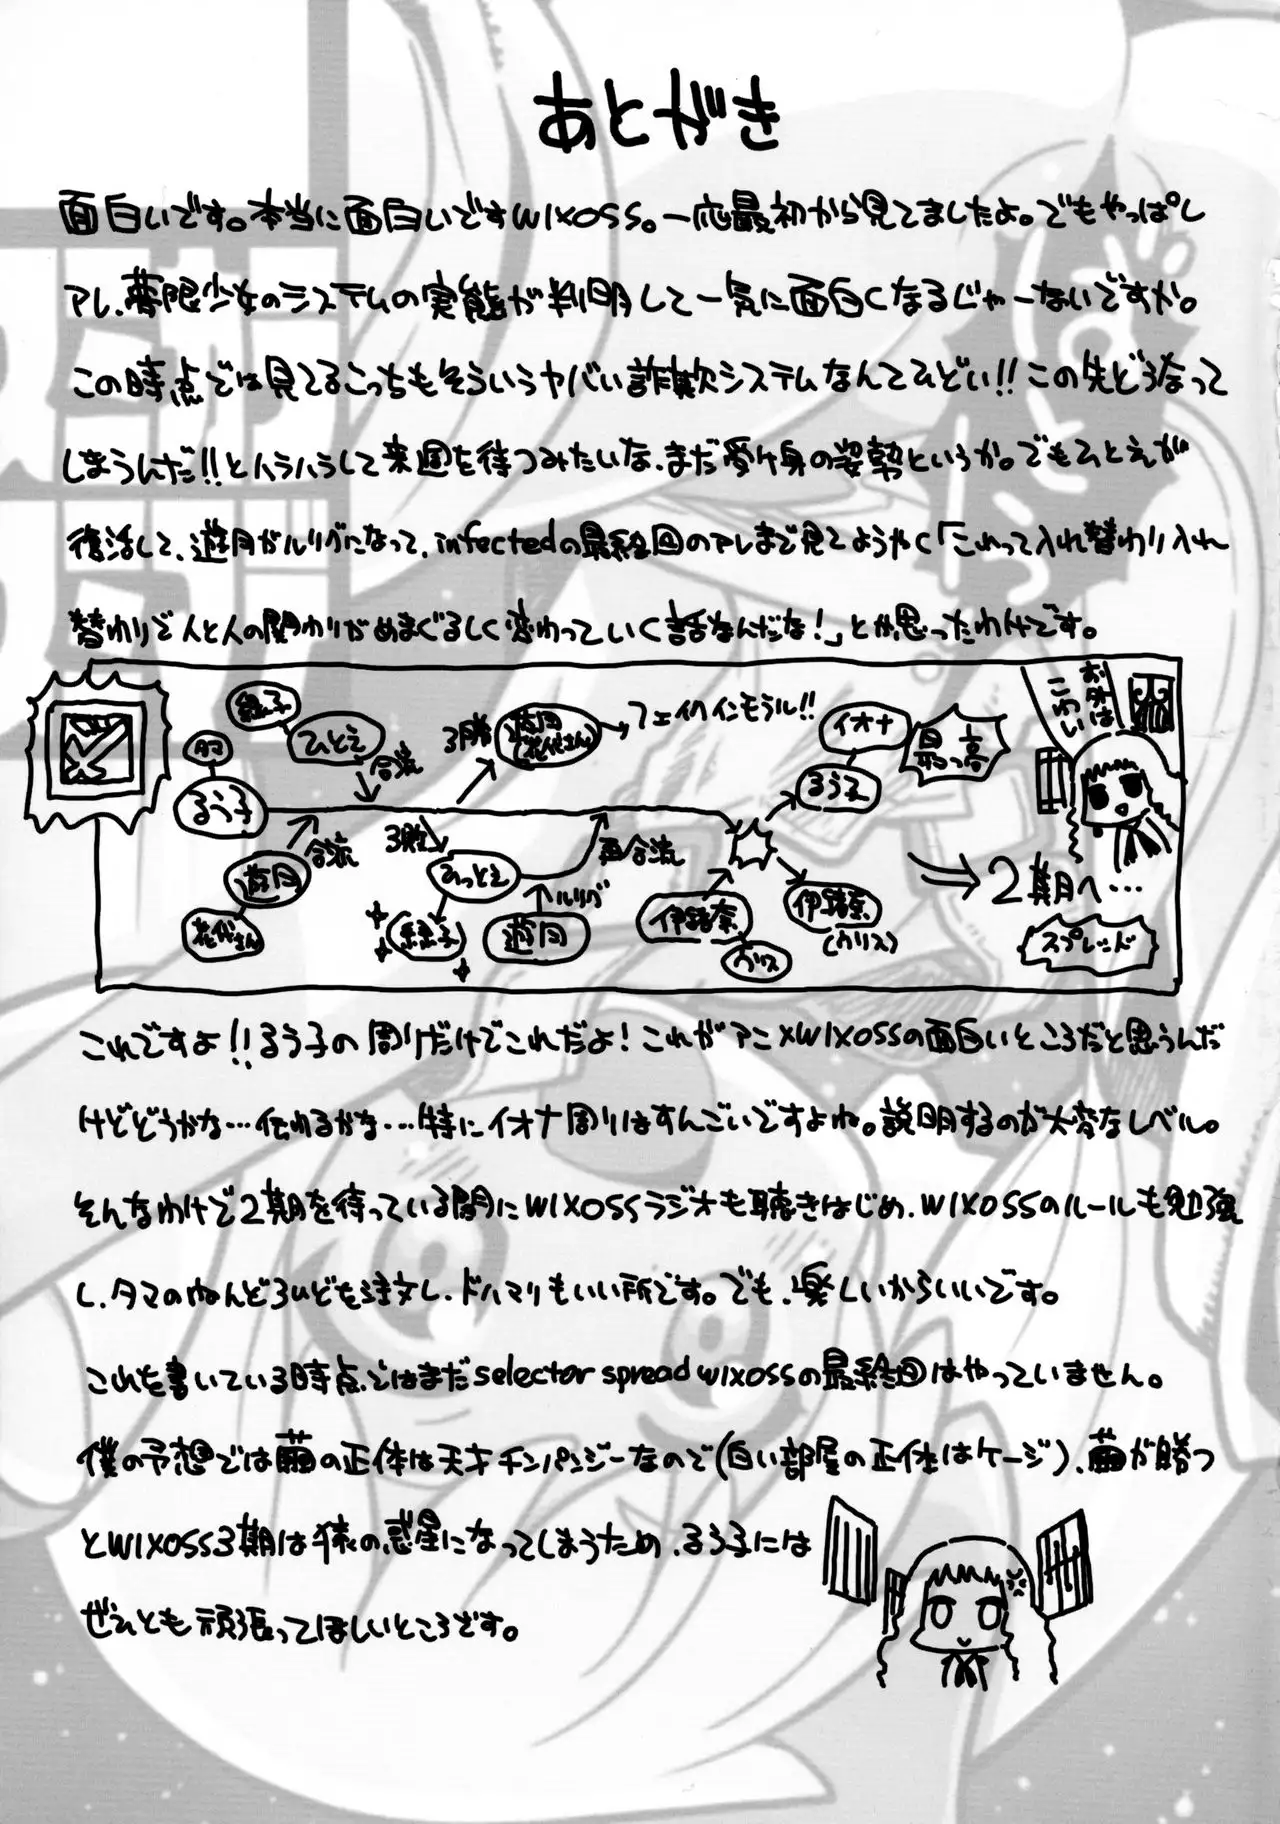 あとがき
面白いです。本当に面白いですWIXOSS。一応最初から見てましたよ。でもやっぱし
アレ、夢限少女のシステムの実態が判明して一気に面白くなるじゃーないですか。
この時点では見てるこっちもそういうヤバい詐欺システムなんてひどい!!この先どうなって
しまうんだ!!とハラハラして来週を待つみたいな、まだ受け身の姿勢というか。でもひとえが
復活して、遊月がルリグになって、infectedの最終回のアレまで見てようやく「これって入れ替わり入れ
替わりで人と人の関わりがめまぐるしく変わっていく話なんだな!」とか思ったわけです。
緑子
ひとえ
合流
タマ
るう子
合流
遊月
花代さん
3勝
遊月(花代さん)
→フェイクインモラル!!
3敗
ひっとえ
緑子
ルリグ
遊月
再合流
伊緒奈
ウリス
伊緒奈
(ウリス)
イオナ
るう子
最っ高
お外は
こわい
2期へ…
スプレッド
これですよ!!るう子の周りだけでこれだよ!これがアニメWIXOSSの面白いところだと思うんだ
けどどうかな…伝わるかな…特にイオナ周りはすんごいですよね。説明するのが大変なレベル。
そんなわけで2期を待っている間にWIXOSSラジオも聴きはじめ、WIXOSSのルールも勉強
し、タマのねんどろいども注文し、ドハマりもいい所です。でも、楽しいからいいです。
これを書いている時点ではまだselector spread wixossの最終回はやっていません。
僕の予想では繭の正体は天才チンパンジーなので(白い部屋の正体はケージ)、繭が勝つ
とWIXOSS3期は猿の惑星になってしまうため、るう子には
ぜひとも頑張ってほしいところです。